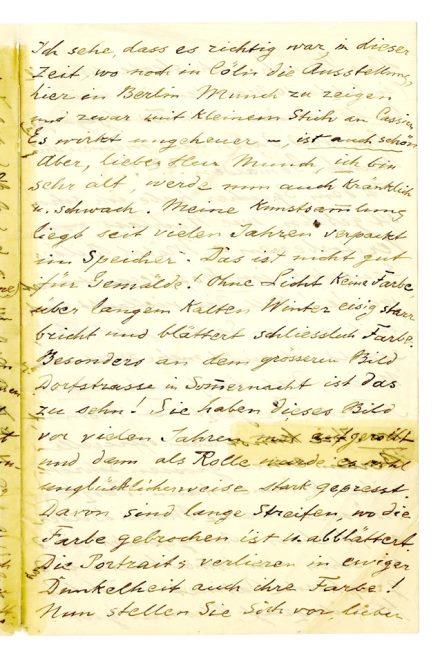 Ich sehe, dass es richtig war, in dieser
Zeit, wo noch in Cöln die Ausstellung,
hier in Berlin Munch zu zeigen
und zwar mit kleinem Stich an Cassirer
Es wirkt ungeheuer –, ist auch schön
Aber, lieber Herr Munch, ich bin
sehr alt, werde nun auch kränklich
u. schwach. Meine Kunstsam̅lung
liegt seit vielen Jahren verpackt
im Speicher. Das ist nicht gut
für Gemälde! Ohne Licht keine Farbe,
über langem kalten Winter eisig starr
bricht und blättert schliesslich Farbe.
Besonders an dem grösseren Bild
Dorfstrasse in Som̅ernacht ist das
zu sehn! Sie haben dieses Bild
vor vielen Jahren und aufgerollt
und dann als Rolle wurde es wohl
unglücklicherweise stark gepresst.
Davon sind lange Streifen, wo die
Farbe gebrochen ist u. abblättert.
Die Portraits verlieren in ewiger
Dunkelheit auch ihre Farbe!
Nun stellen Sie Sich vor, lieber